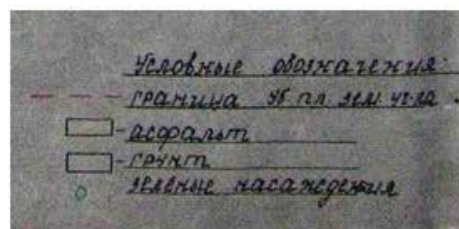 Условные обозначения:
граница уб пл зем уч-ла
- асфальт
- грунт
зелёные насаждения